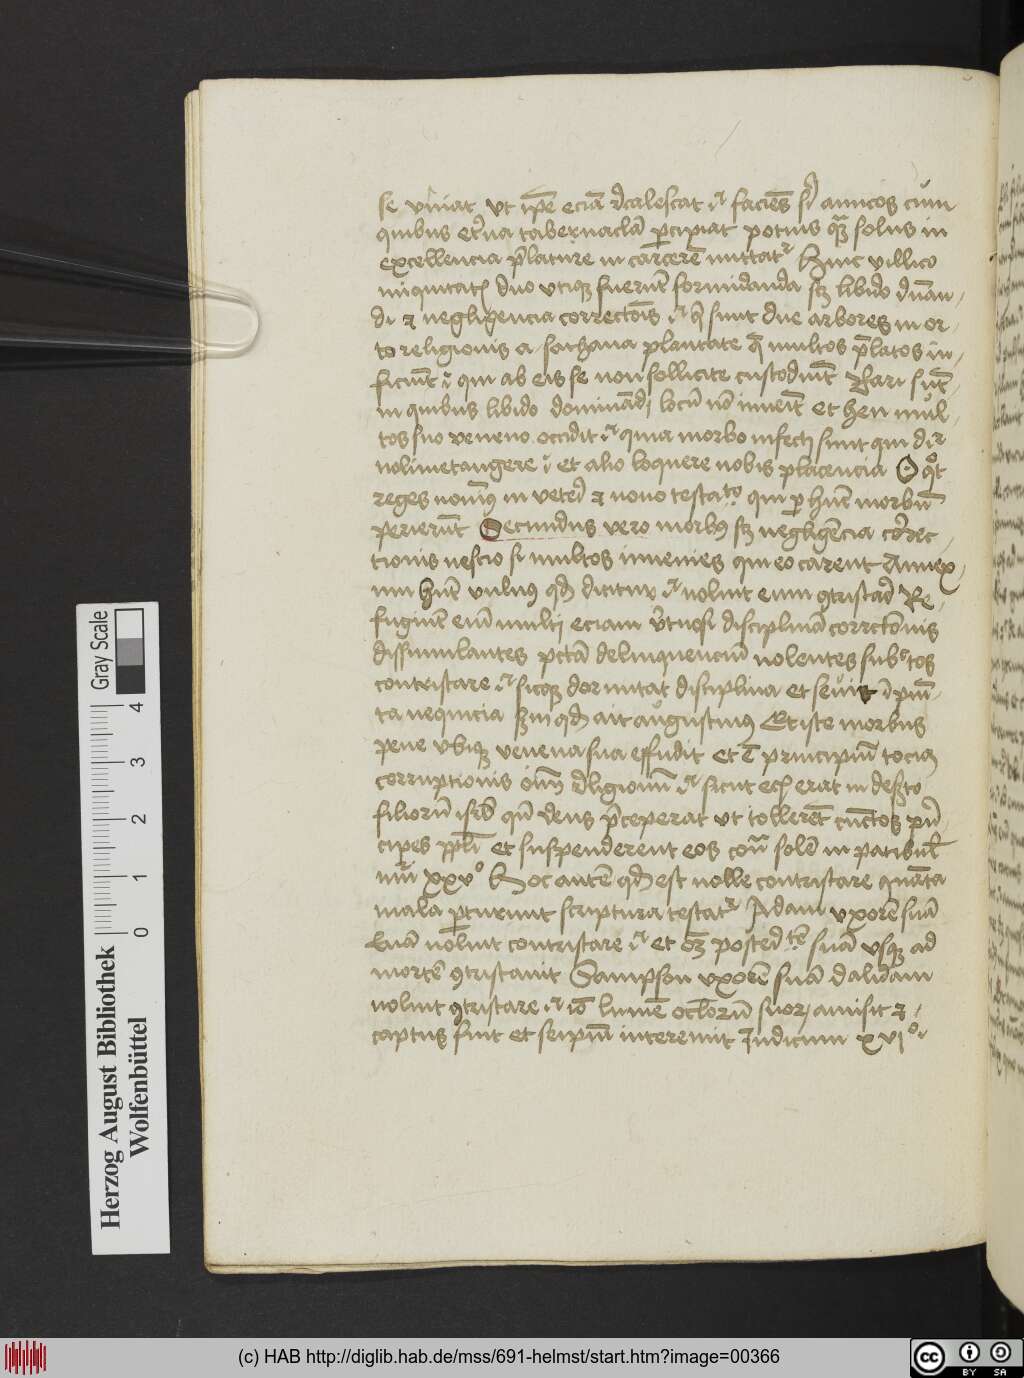 se vniat vt ipe ecia recalescat / facies sibi amicos cum
quibus eterna tabernacla percipiat potius quam solus in
excellencia prelature in carcere mittatur Huic villico
iniquitatis duo vtique fuerunt formidanda scilicet libido dnan
di et negligencia correctois / he sunt due arbores in or
to religionis a sathana plantate que multos prelatos in
ficiunt / qui ab eis se non sollicite custodiunt Rari sunt
in quibus libido dominandi locum non inuenit et heu mul
tos suo veneno occidit / quia morbo infecti sunt qui dicitur
nolimetangere / et alio loquere nobis placencia O quot
reges nouimus in veteri et nouo testato qui per hunc morbum
perierunt Secundus vero morbus scilicet negligencia correc
tionis nescio si multos inuenies qui eo carent Annex
um hunc vulnus quod dicitur / noluit eum contristare Re
fugiunt enim multi eciam virtuosi disciplinam correctionis
dissimulantes peccata delinquencium nolentes subditos
contristare / sicque dormitat disciplina et seuit impuni
ta nequicia secundum quod ait augustinus Et iste morbus
pene vbique venena sua effudit et est principium tocius
corruptionis omnium religionum / sicut eciam erat in deserto
filiorum israel quum deus preceperat vt tollerent cunctos prin
cipes populi et suspenderent eos contra solem in patibulis
numeri xxvo Hoc autem quod est nolle contristare quanta
mala parturiuit scriptura testatur Adam vxorem suam
Euam noluit contristare / et omnem posteritatem suam vsque ad
mortem contristauit Sampson vxorem suam dalidam
noluit contristare / et ideo lumen oculorum suorum amisit et
captus fuit et seipsum interemit Iudicum xvjo
Gray Scale
0 1 2 3 4
Herzog August Bibliothek
Wolfenbüttel
(c) HAB http://diglib.hab.de/mss/691-helmst/start.htm?image=00366
cc BY SA